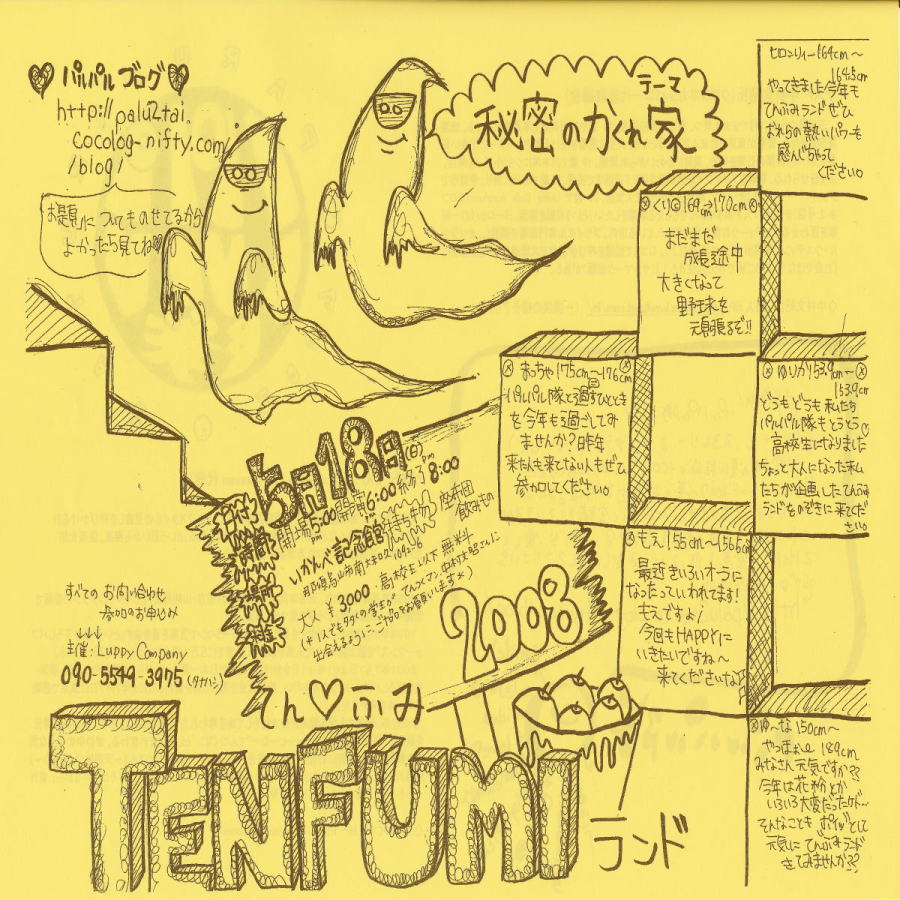 パルパルブログ
http://palu2tai.
cocolog-nifty.com/
/blog/
お題についてものせてるから
よかったら見てね
テーマ
秘密のかくれ家
ヒロンリィー164cm〜
164.5cm
やってきました今年も
てんふみランドぜひ
おれらの熱いパワーを
感んじちゃって
ください。
くりG 169cm→170cm
まだまだ
成長途中
大きくなって
野球を
頑張るぞ!!
まっちゃ175cm〜176cm
パルパル隊と過すひととき
を今年も過ごしてみ
ませんか?昨年
来た人も来てない人もぜひ
参加してください。
ゆりか153.9cm〜
153.9cm
どうもどうも私たち
パルパル隊もとうとう
高校生になりました
ちょっと大人になった私
たちが企画したてんふみ
ランドをのぞきに来てくだ
さい。
もえ156cm〜156.5cm
最近きいろいオーラに
なったっていわれてます!
もえですょ♪
今回もHAPPYに
いきたいですね〜
来てくださいな
ゆーな150cm〜
189cm
みなさん元気ですか??
今年は花粉とか
いろいろ大変だったケド〜
そんなことも ポイッ として
元気にてんふみランド
きてみませんか??
日付
5月18日(日)
時間
開場PM5:00 開演PM6:00 終了PM8:00
場所
いかんべ記念館
持ち物
座布団
飲みもの
大人¥3000・高校生以下 無料
(*1人でも多くの学生が てんつくマン、中村文昭さんに
出会えるように、ご協力をお願いします*)
2008
すべてのお問い合わせ
参加のお申込み
↓↓↓
主催:Luppy Company
090-5549-3975 (タカハシ)
てん♡ふみ
TENFUMI
ランド